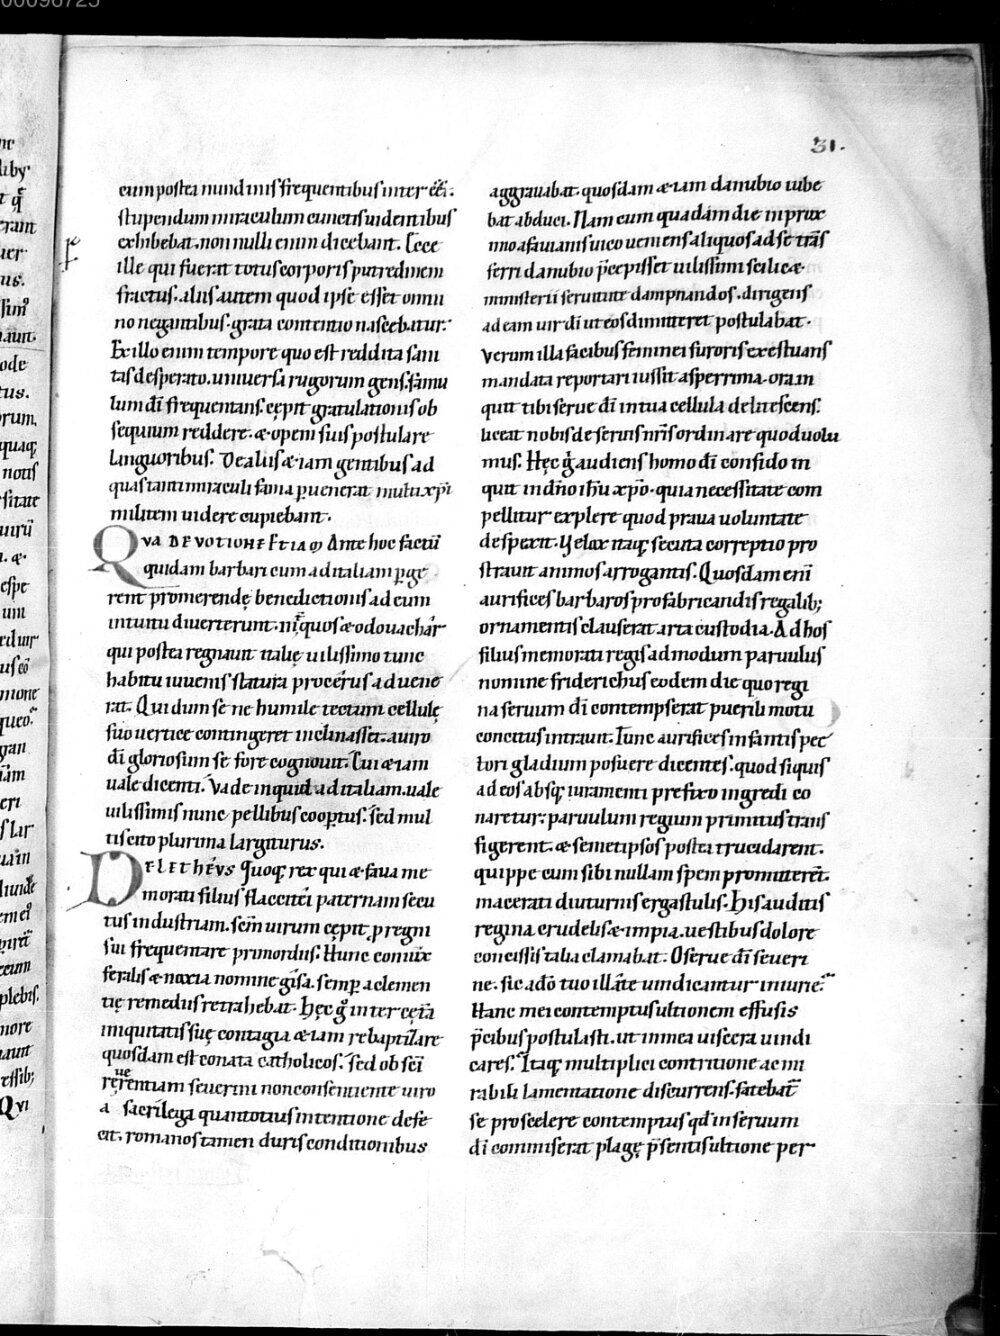 31.
eum postea nundinis frequentibus inter eē.
stupendum miraculum cunctis uidentibus
exhibebat. non nulli enim dicebant. Ecce
ille qui fuerat totus corporis putredinem
fractus. aliis autem quod ipse esset omni
no negantibus. grata contentio nascebatur.
Ex illo enim tempore quo est reddita sani
tas desperato. uniuersa rugorum gens. famu
lum dī frequentans. cępit gratulationis ob
sequium reddere. & opem suis postulare
languoribus. De aliis & iam gentibus ad
quas tanti miraculi fama ꝑuenerat multi xp̄i
militem uidere cupiebant.
QVA DEVOTIONE ETIAM Ante hoc factū
quidam barbari cum ad italiam ꝑge
rent promerendę benedictionis ad eum
intuitu diuerterunt. int̄ quos & odouachar
qui postea regnauit italię uilissimo tunc
habitu iuuenis statura procerus aduene
rat. Qui dum se ne humile tectum cellulę
suo uertice contingeret inclinasset. a uiro
dī gloriosum se fore cognouit. Cui & iam
uale dicenti. Vade inquid ad italiam. uale
uilissimis nunc pellibus cooꝑtus. sed mul
tis cito plurima largiturus.
FELETHEVS Quoq; rex qui & faua me
morati filius flaccitei paternam secu
tus industriam. scm̄ uirum cępit. p regni
sui frequentare primordiis. Hunc coniux
feralis & noxia nomine gisa. semꝑ a clemen
tię remediis retrahebat. Hęc g̊ inter cęta
iniquitatis suę contagia & iam rebaptizare
quosdam est conata catholicos. sed ob sc̄i
reuerentiam seuerini non consentiente uiro
a sacrilega quantotius intentione defe
cit. romanos tamen duris conditionibus
aggrauabat. quosdam & iam danubio iube
bat abduci. Nam cum quadam die in prox
imo a fauianis uico ueniens aliquos ad se trās
ferri danubio p̄cepisset uilissimi scilic&
ministerii seruitute dampnandos. dirigens
ad eam uir dī ut eos dimitteret postulabat.
Verum illa facibus feminei furoris exestuans
mandata reportari iussit asperrima. ora in
quit tibi serue dī in tua cellula delitescens.
liceat nobis de seruis nr̄is ordinare quod uolu
mus. Hęc g̊ audiens homo dī confido in
quit in dn̄o ihū xp̄o. quia necessitate com
pellitur explere quod praua uoluntate
despexit. Velox itaq; secuta correptio pro
strauit animos arrogantis. Quosdam enī
aurifices barbaros pro fabricandis regalib;
ornamentis clauserat arta custodia. Ad hos
filius memorati regis admodum paruulus
nomine friderichus eodem die quo regi
na seruum dī contempserat puerili motu
concitus intrauit. Tunc aurifices infantis pec
tori gladium posuere dicentes. quod si quis
ad eos absq; iuramenti prefixo ingredi co
naretur. paruulum regium primitus trans
figerent. & semetipsos postea trucidarent.
quippe cum sibi nullam spem promitterent.
macerati diuturnis ergastulis. His auditis
regina crudelis & impia. uestibus dolore
concissis talia clamabat. O serue dī seueri
ne. sic a dō tuo illate uindicantur iniurię.
Hanc mei contemptus ultionem effusis
p̄cibus postulasti. ut in mea uiscera uindi
cares. Itaq; multiplici contritione ac mi
rabili lamentatione discurrens. fatebat̄
se pro scelere contemptus qd̄ in seruum
dī commiserat plagę p̄sentis ultione per